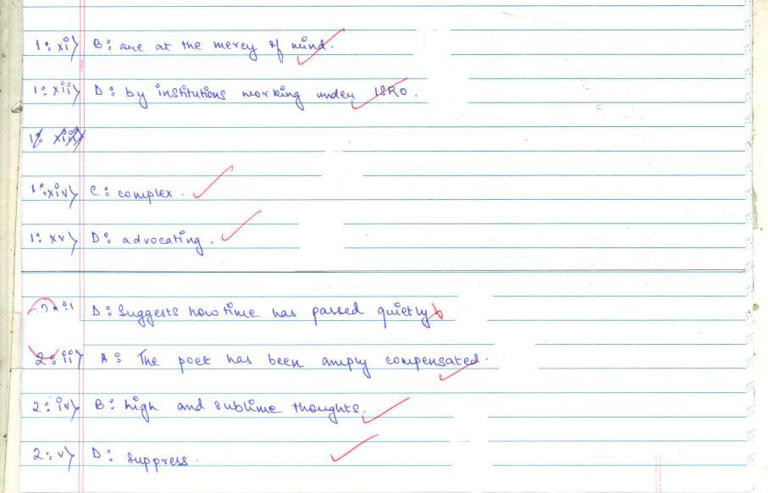 1: xi) B: are at the mercy of mind.
1: xii) D: by institutions working under ISRO.
1: xiii)
1: xiv) C: complex.
1: xv) D: advocating.
2: i D: Suggests how time has passed quietly
2: ii) A: The poet has been amply compensated.
2: iv) B: high and sublime thoughts.
2: v) D: suppress.